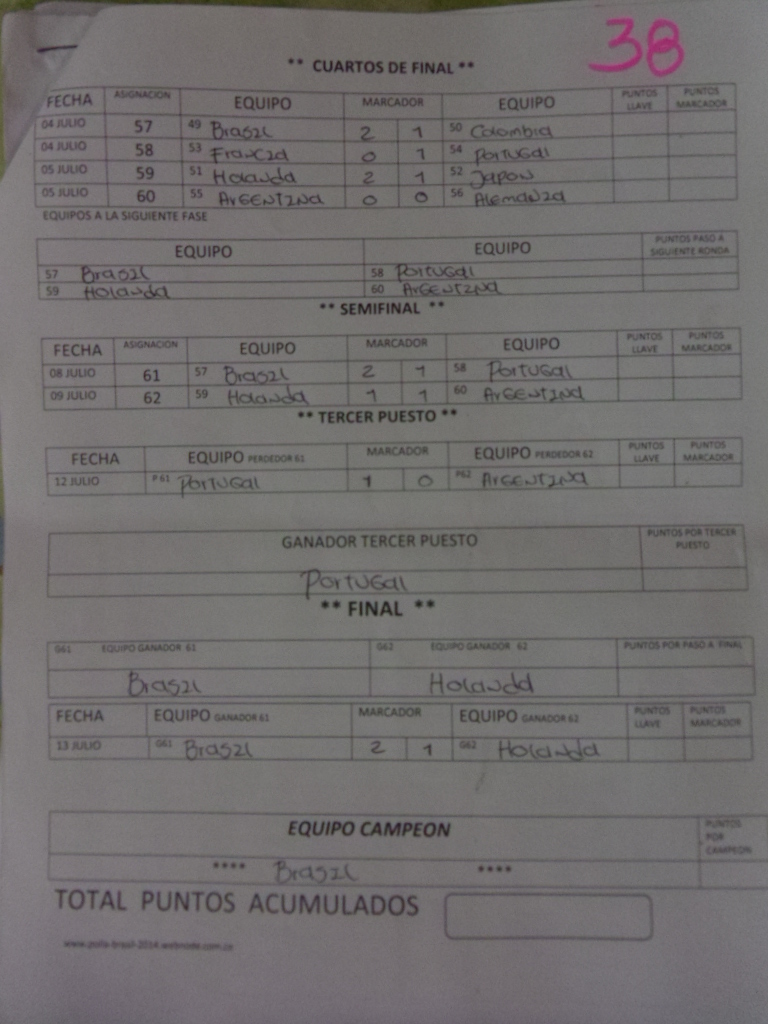 38
** CUARTOS DE FINAL **
FECHA ASIGNACION EQUIPO MARCADOR EQUIPO PUNTOS LLAVE PUNTOS MARCADOR
04 JULIO 57 49 Brasil 2 1 50 Colombia
04 JULIO 58 53 Francia 0 1 54 Portugal
05 JULIO 59 51 Holanda 2 1 52 Japon
05 JULIO 60 55 ArGENTINA 0 0 56 Alemania
EQUIPOS A LA SIGUIENTE FASE
EQUIPO EQUIPO PUNTOS PASO A SIGUIENTE RONDA
57 Brasil 58 Portugal
59 Holanda 60 ArGENTINA
** SEMIFINAL **
FECHA ASIGNACION EQUIPO MARCADOR EQUIPO PUNTOS LLAVE PUNTOS MARCADOR
08 JULIO 61 57 Brasil 2 1 58 Portugal
09 JULIO 62 59 Holanda 1 1 60 ArGENTINA
** TERCER PUESTO **
FECHA EQUIPO PERDEDOR 61 MARCADOR EQUIPO PERDEDOR 62 PUNTOS LLAVE PUNTOS MARCADOR
12 JULIO P61 PORTUGal 1 0 P62 ArGENTINA
GANADOR TERCER PUESTO PUNTOS POR TERCER PUESTO
PORTUGal
** FINAL **
G61 EQUIPO GANADOR 61 G62 EQUIPO GANADOR 62 PUNTOS POR PASO A FINAL
Brasil Holanda
FECHA EQUIPO GANADOR 61 MARCADOR EQUIPO GANADOR 62 PUNTOS LLAVE PUNTOS MARCADOR
13 JULIO G61 Brasil 2 1 G62 Holanda
EQUIPO CAMPEON PUNTOS POR CAMPEON
**** Brasil ****
TOTAL PUNTOS ACUMULADOS
www.polla-brasil-2014.webnode.com.co